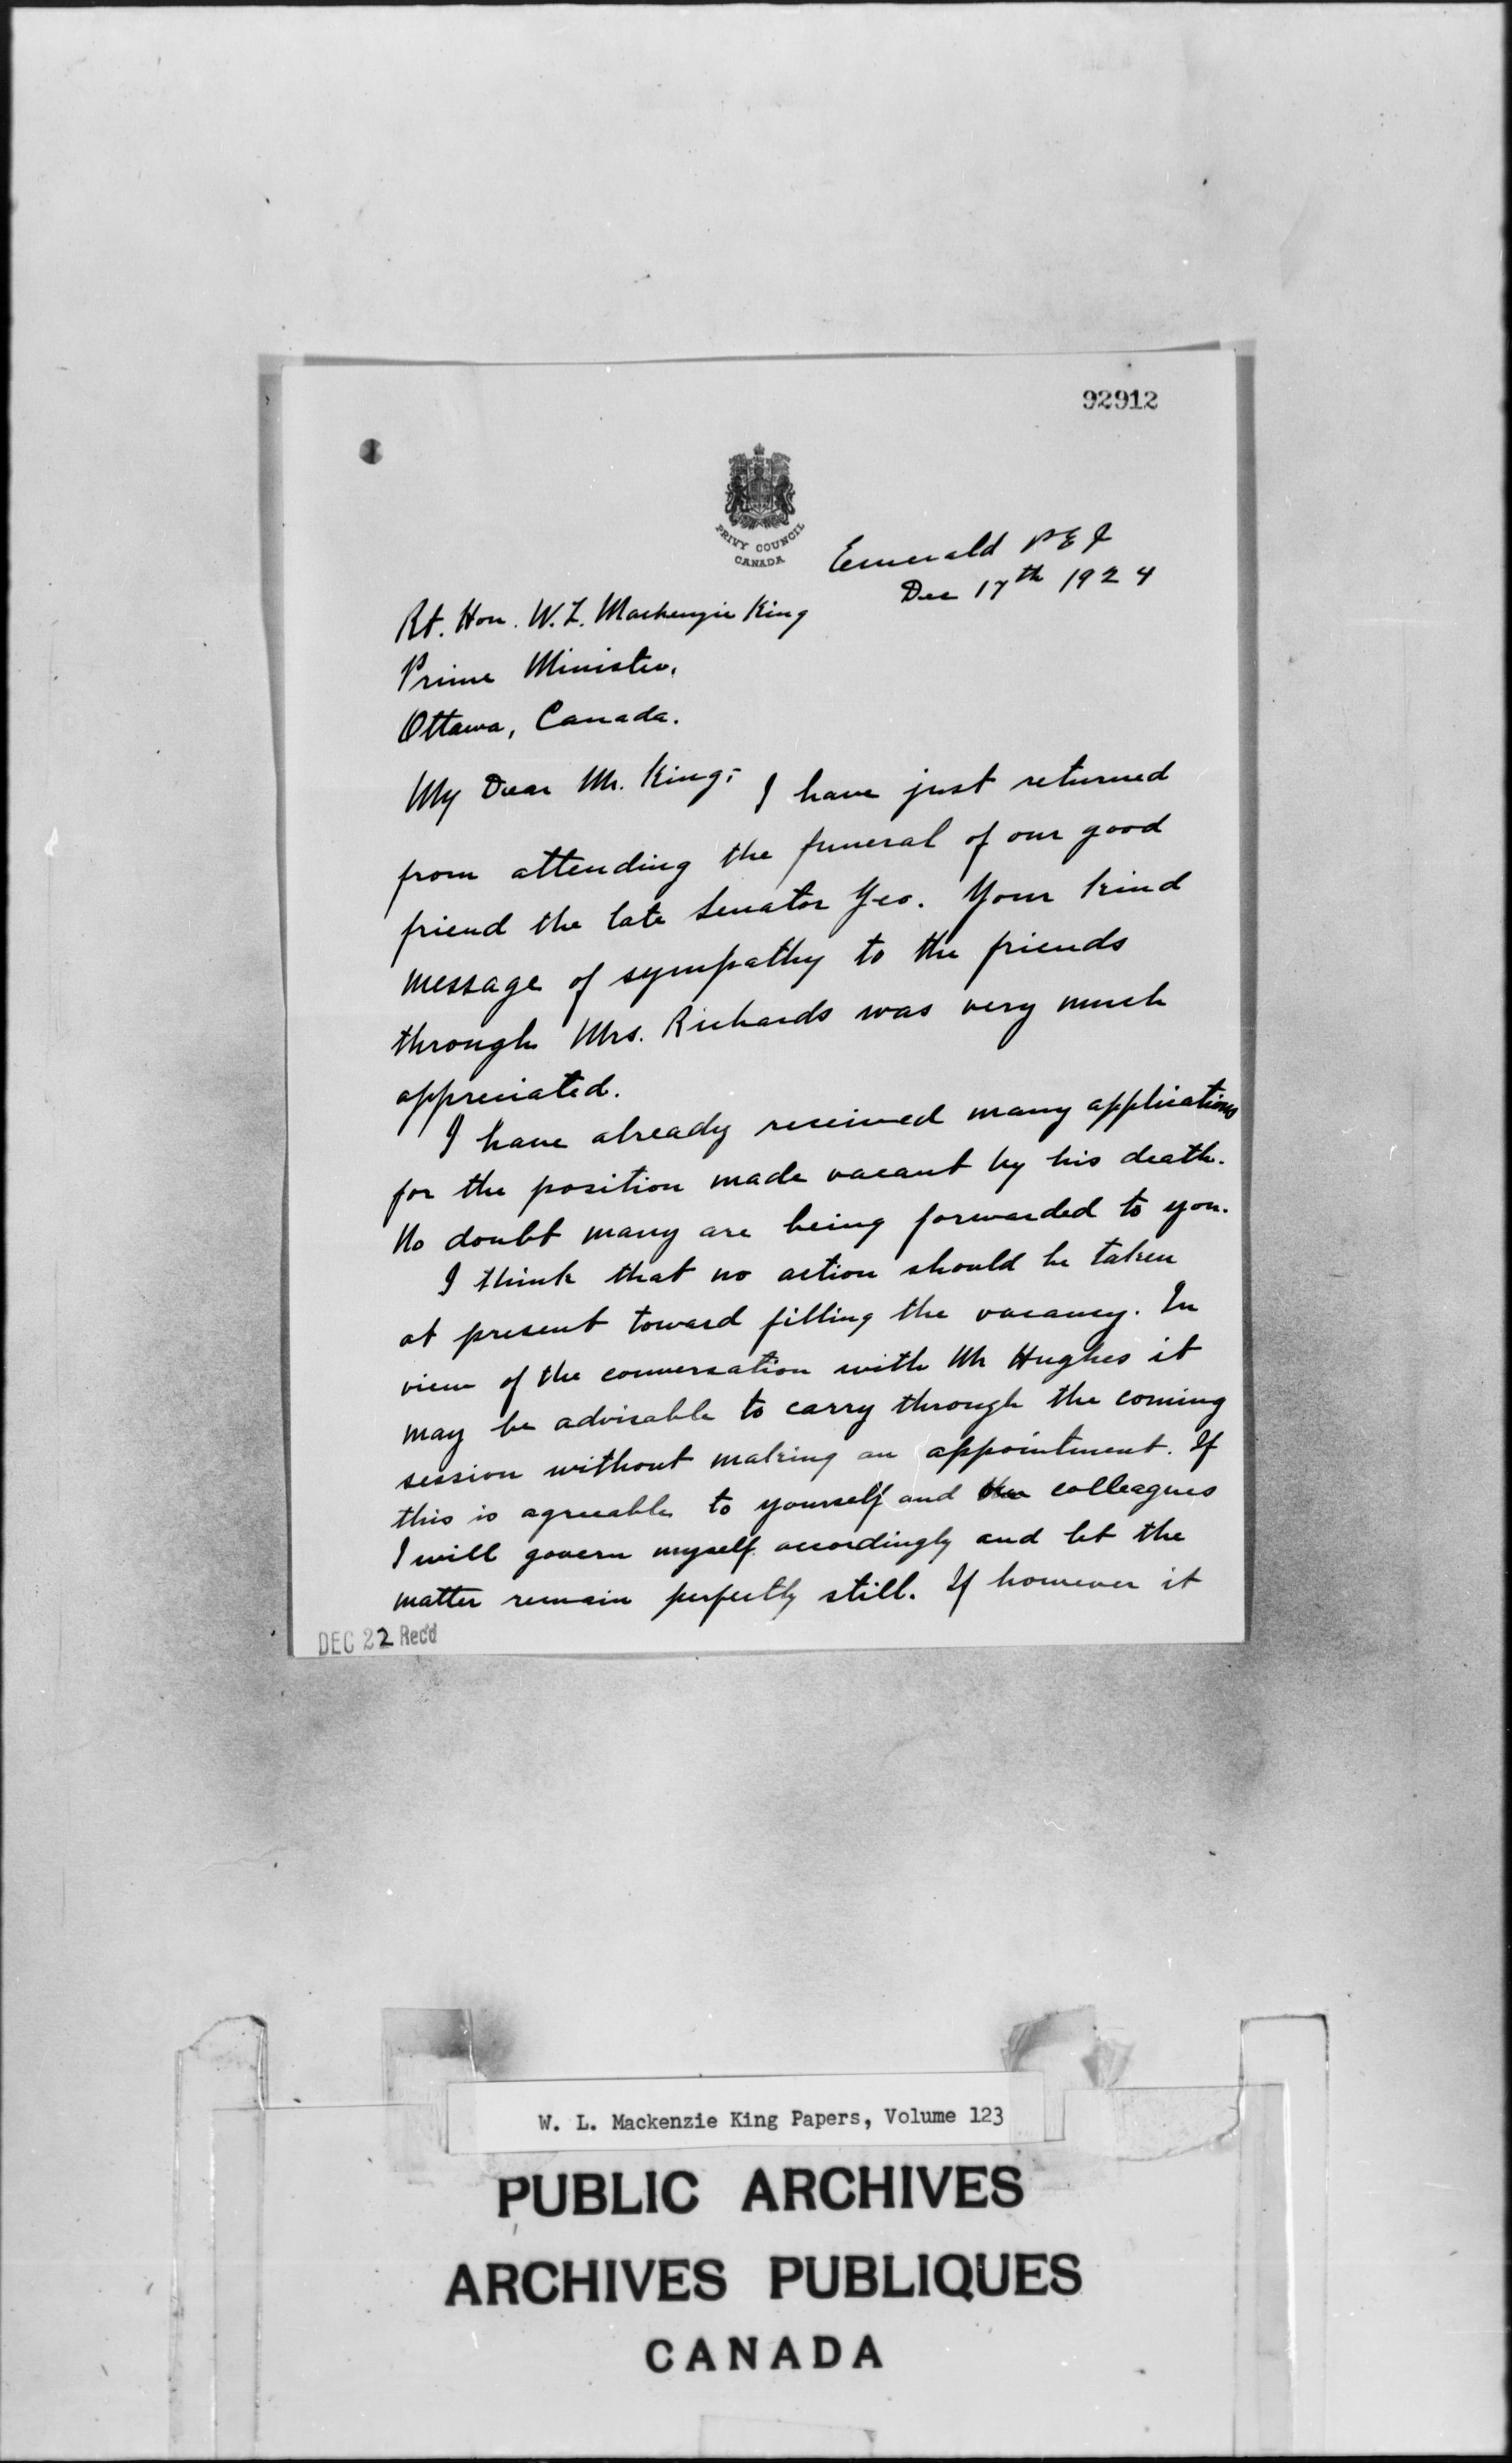 92912
PRIVY COUNCIL
CANADA
Emerald P E I
Dec 17th 1924
Rt. Hon. W. L. Mackenzie King
Prime Minister,
Ottawa, Canada.
My Dear Mr. King;- I have just returned
from attending the funeral of our good
friend the late Senator Yeo. Your kind
message of sympathy to the friends
through Mrs. Richards was very much
appreciated.
I have already received many applications
for the position made vacant by his death.
No doubt many are being forwarded to you.
I think that no action should be taken
at present toward filling the vacancy. In
view of the conversation with Mr Hughes it
may be advisable to carry through the coming
session without making an appointment. If
this is agreeable to yourself and colleagues
I will govern myself accordingly and let the
matter remain perfectly still. If however it
DEC 22 Rec'd
W. L. Mackenzie King Papers, Volume 123
PUBLIC ARCHIVES
ARCHIVES PUBLIQUES
CANADA